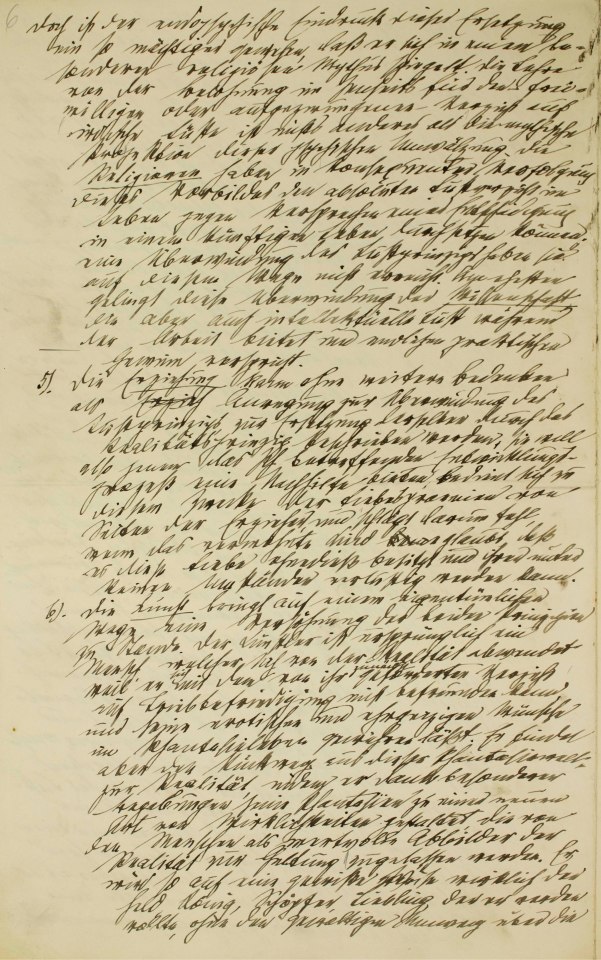 6
Doch ist der endopsychische Eindruck dieser Ersetzung
ein so mächtiger gewesen, daß er sich in einem be-
sonderen religiösen Mythus spiegelt. Die Lehre
von der Belohnung im Jenseits für den frei-
willigen oder aufgezwungenen Verzicht auf
irdische Lüste ist nichts anderes als die mythische
Projektion dieser psychischen Umwälzung. Die
Religionen haben in konsequenter Verfolgung
dieses Vorbildes den absoluten Lustverzicht im
Leben gegen Versprechen einer Entschädigung
in einem künftigen Leben durchsetzen können.
eine Überwindung des Lustprinzips haben sie
auf diesem Wege nicht erreicht. Am ehesten
gelingt diese Überwindung der Wissenschaft
die aber auch intellektuelle Lust während
der Arbeit bietet und endlichen praktischen
Gewinn verspricht.
5). Die Erziehung kann ohne weitere Bedenken
als Anregung zur Überwindung des
Lustprinzips, zur Ersetzung desselben durch das
Realitätsprinzip beschrieben werden; sie will
also jenem das Ich betreffenden Entwicklungs-
prozeß eine Nachhilfe bieten, bedient sich zu
diesem Zwecke der Liebesprämien von
Seiten der Erzieher, und schlägt darum fehl,
wenn das verwöhnte Kind glaubt, daß
es diese Liebe ohnedieß besitzt und ihrer unter
keinen Umständen verlustig werden kann.
6). Die Kunst bringt auf einem eigentümlichen
Wege eine Versöhnung der beiden Prinzipien
zu Stande. Der Künstler ist ursprünglich ein
Mensch, welcher sich von der Realität abwendet
weil er sich mit dem von ihr zunächst geforderten Verzicht
auf Triebbefriedigung nicht befreunden kann,
und seine erotischen und ehrgeizigen Wünsche
im Phantasieleben gewähren läßt. Er findet
aber den Rückweg aus dieser Phantasiewelt
zur Realität, indem er dank besonderer
Begabungen seine Phantasien zu einer neuen
Art von Wirklichkeiten gestaltet, die von
den Menschen als wertvolle Abbilder der
Realität zur Geltung zugelassen werden. Er
wird so auf eine gewisse Weise wirklich der
Held, König, Schöpfer, Liebling, der er werden
wollte, ohne den gewaltigen Umweg über die